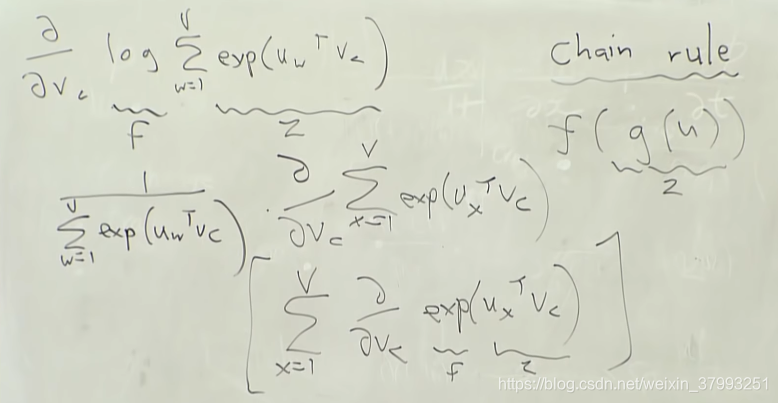 ∂/∂v_c log Σ_{w=1}^{V} exp(u_w^T v_c)
f z
Chain rule
f(g(u))
z
1/(Σ_{w=1}^{V} exp(u_w^T v_c)) · ∂/∂v_c Σ_{x=1}^{V} exp(u_x^T v_c)
[Σ_{x=1}^{V} ∂/∂v_c exp(u_x^T v_c)]
f z
https://blog.csdn.net/weixin_37993251